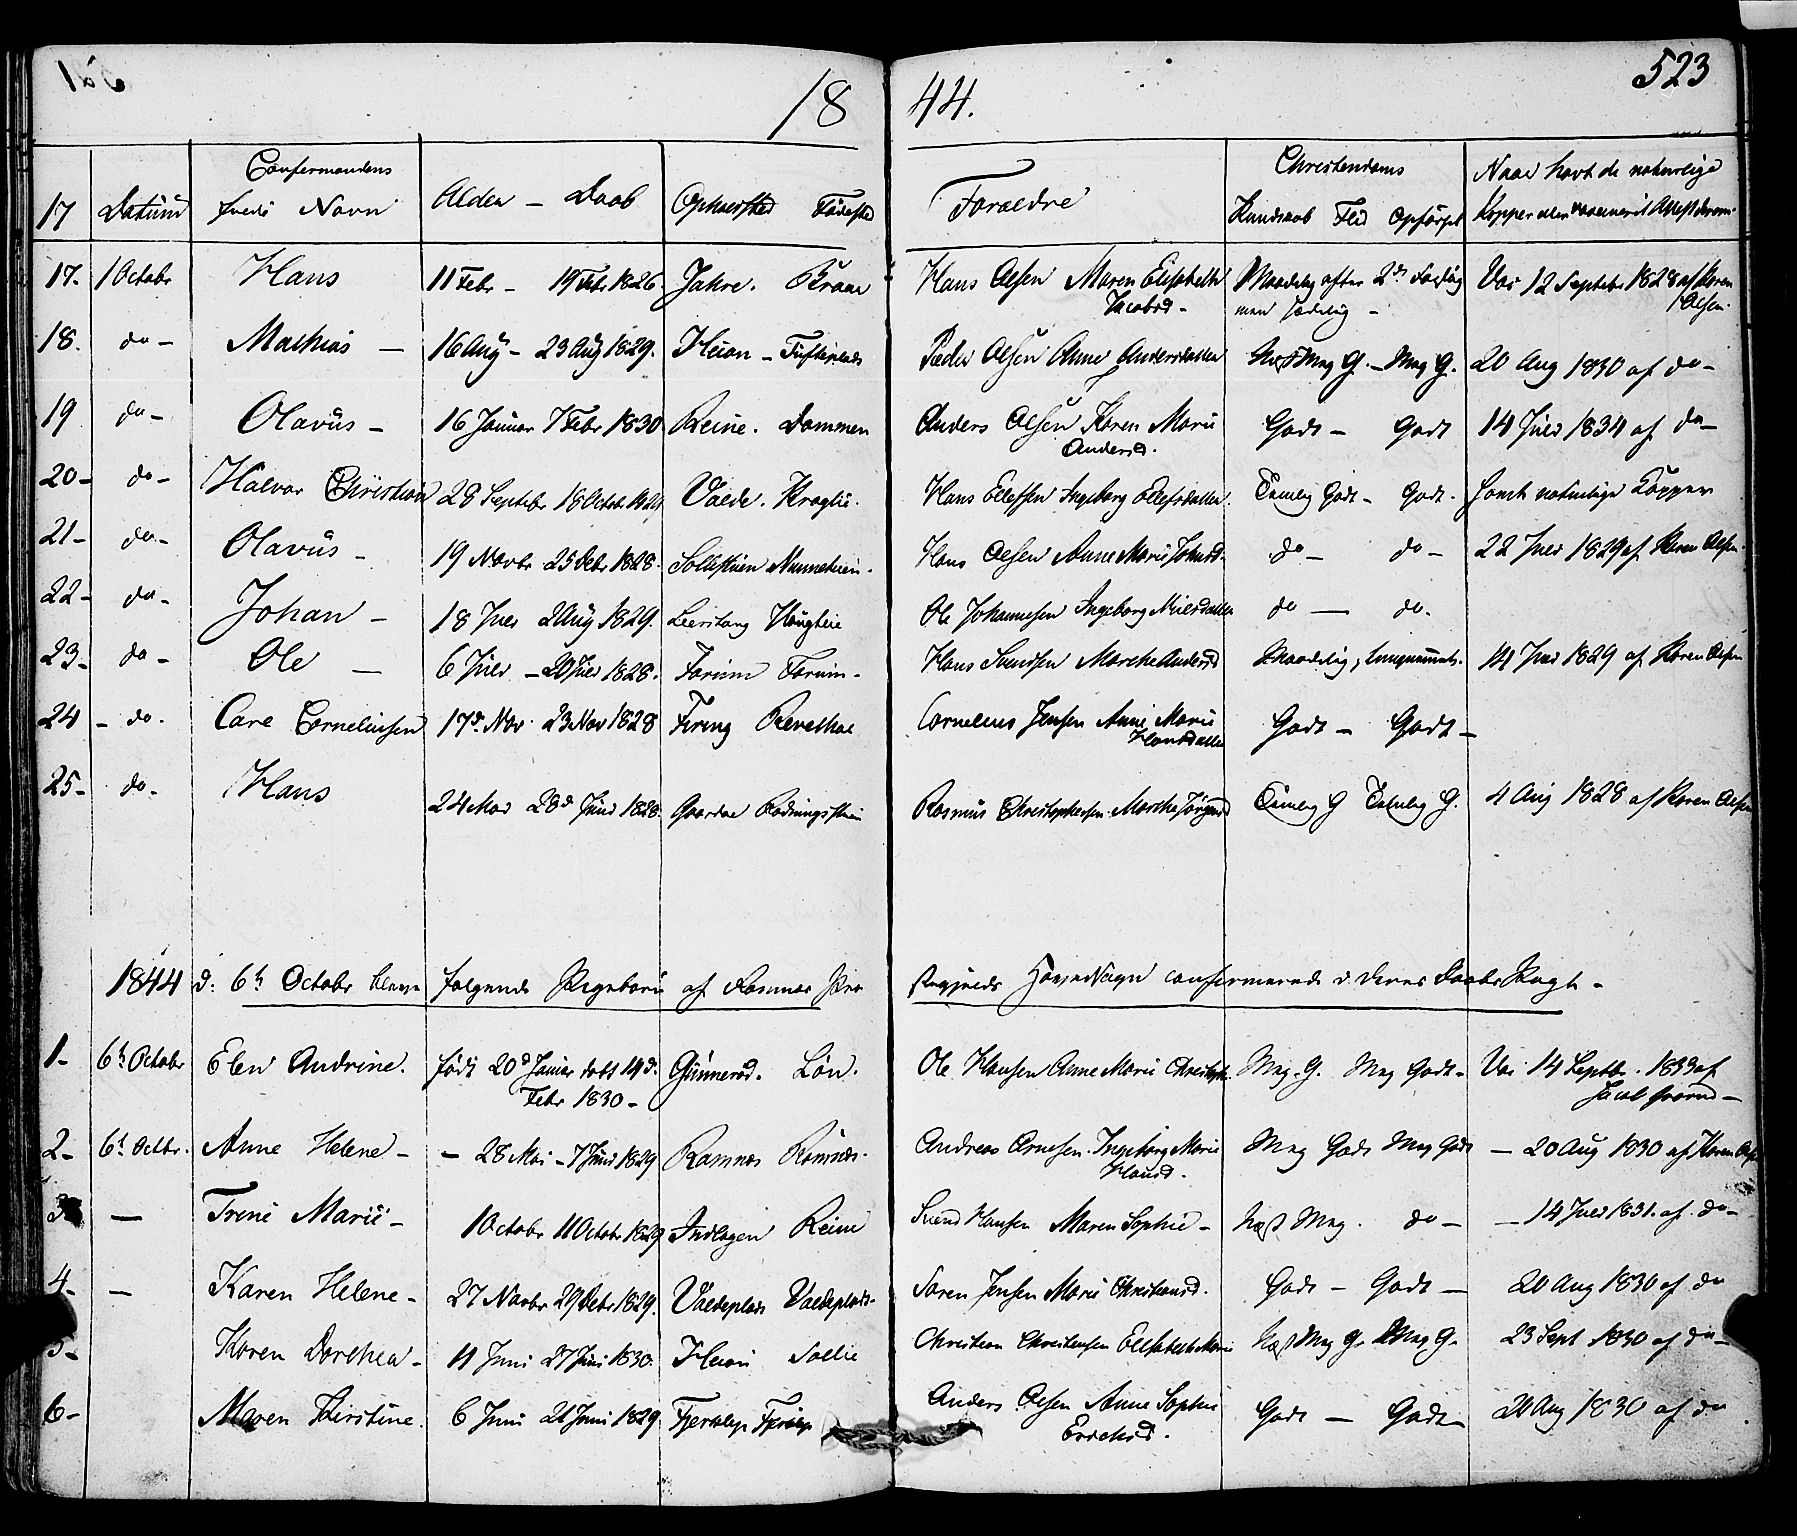 1844.
523
17 Datum Confermandens fulde Navn Alder — Daab Opholdsted Födested Foraeldre Christendoms Kundskab Flid Opförsel Naar havt de naturlige Kopper eller vaccineret Attest derom
17. 1 Octobr Hans 11 Febr — 19 Febr 1826. Jahre. Hans Olsen Maren Elisabeth Jacobsd — Maadelig efter men Vac 12 Septebr 1828 af Karen Olsen
18. do — Mathias — 16 Aug — 23 Aug 1829. Hans Peder Olsen Anne Andersdatter Næst Mag G. — Mag G. 20 Aug 1830 af do —
19 do — Olavus — 16 Januar 7 Febr 1830 Reine. Dammen Anders Olsen Karen Marie Andersd. Godt — Godt 14 Juli 1834 af do —
20 — do — Halvor Christian 28 Septebr 18 Octobr 1829 Valde. Kroglie. Hans Ellefsen Ingeborg Ellefsdatter. Temlig Godt — Godt. havt naturlige Kopper
21 — do — Olavus — 19 Novbr 25 Debr 1828. Hans Olsen Anne Marie do — do — 22 Juli 1829 af Karen Olsen.
22 — do — Johan — 18 Juli 2 Aug 1829. Leerstang Haugteie Ole Johannesen Ingeborg Nielsdatter do — do.
23 — do — Ole — 6 Juli — 20 Juli 1828. Forum Forum — Hans Svendsen Marthe Andersd Maadelig, 14 Juli 1829 af Karen Olsen
24 — do. Carl Corneliusen 17d. Nov. 23 Nov 1828 Firing Revethal Cornelius Jensen Anne Marie Hansdatter Godt — Godt —
25 — do — Hans 24 Mai 28d Juni 1828. Rasmus Christophersen Marthe Jörgensd Temlig G Temlig G. 4 Aug 1828 af Karen Olsen
1844 d: 6h Octobr bleve følgende Pigebørn af Ramnæs Præstegjelds Hovedsogn confirmerede i deres Daabs Pagt —
1 — 6h Octobr Elen Andrine. født 20d Januar døbt 14d. Febr 1830 — Gunnerød. Löv. Ole Hansen Anne Marie Mag. G. Mag Godt — Vac 14 Septbr. 1833 af Jacob
2 — 6h Octbr. Anne Helene — — 28 Mai — 7 Juni 1829 Ramnæs Ramnæs — Andreas Arnesen. Ingeborg Marie Hansd. Mag Godt Mag Godt — 20 Aug 1830 af Karen Olsen
3 — Trine Marie — 1 Octobr 11 Octobr 1829 Indlagen Reine Svend Hansen Maren Sophie — Næst Mag. do — — 14 Juli 1831. af do —
4 — — Karen Helene — 27 Novbr 29 Debr 1829. Valdeplads Valdeplads — Søren Jensen Marie Christiansd. Godt — Godt — 20 Aug 1830 af do
5 — Karen Dorthea — 11 Juni 27 Juni 1830. Sollie Christian Christensen Elisabeth Marie Næst Mag G — Mag G — 23 Sept 1830 af do —
6 — Maren Kirstine. 6 Juni 21 Juni 1829 Anders Olsen Anne Sophie Erichsd. Godt — Godt — 20 Aug 1830 af do